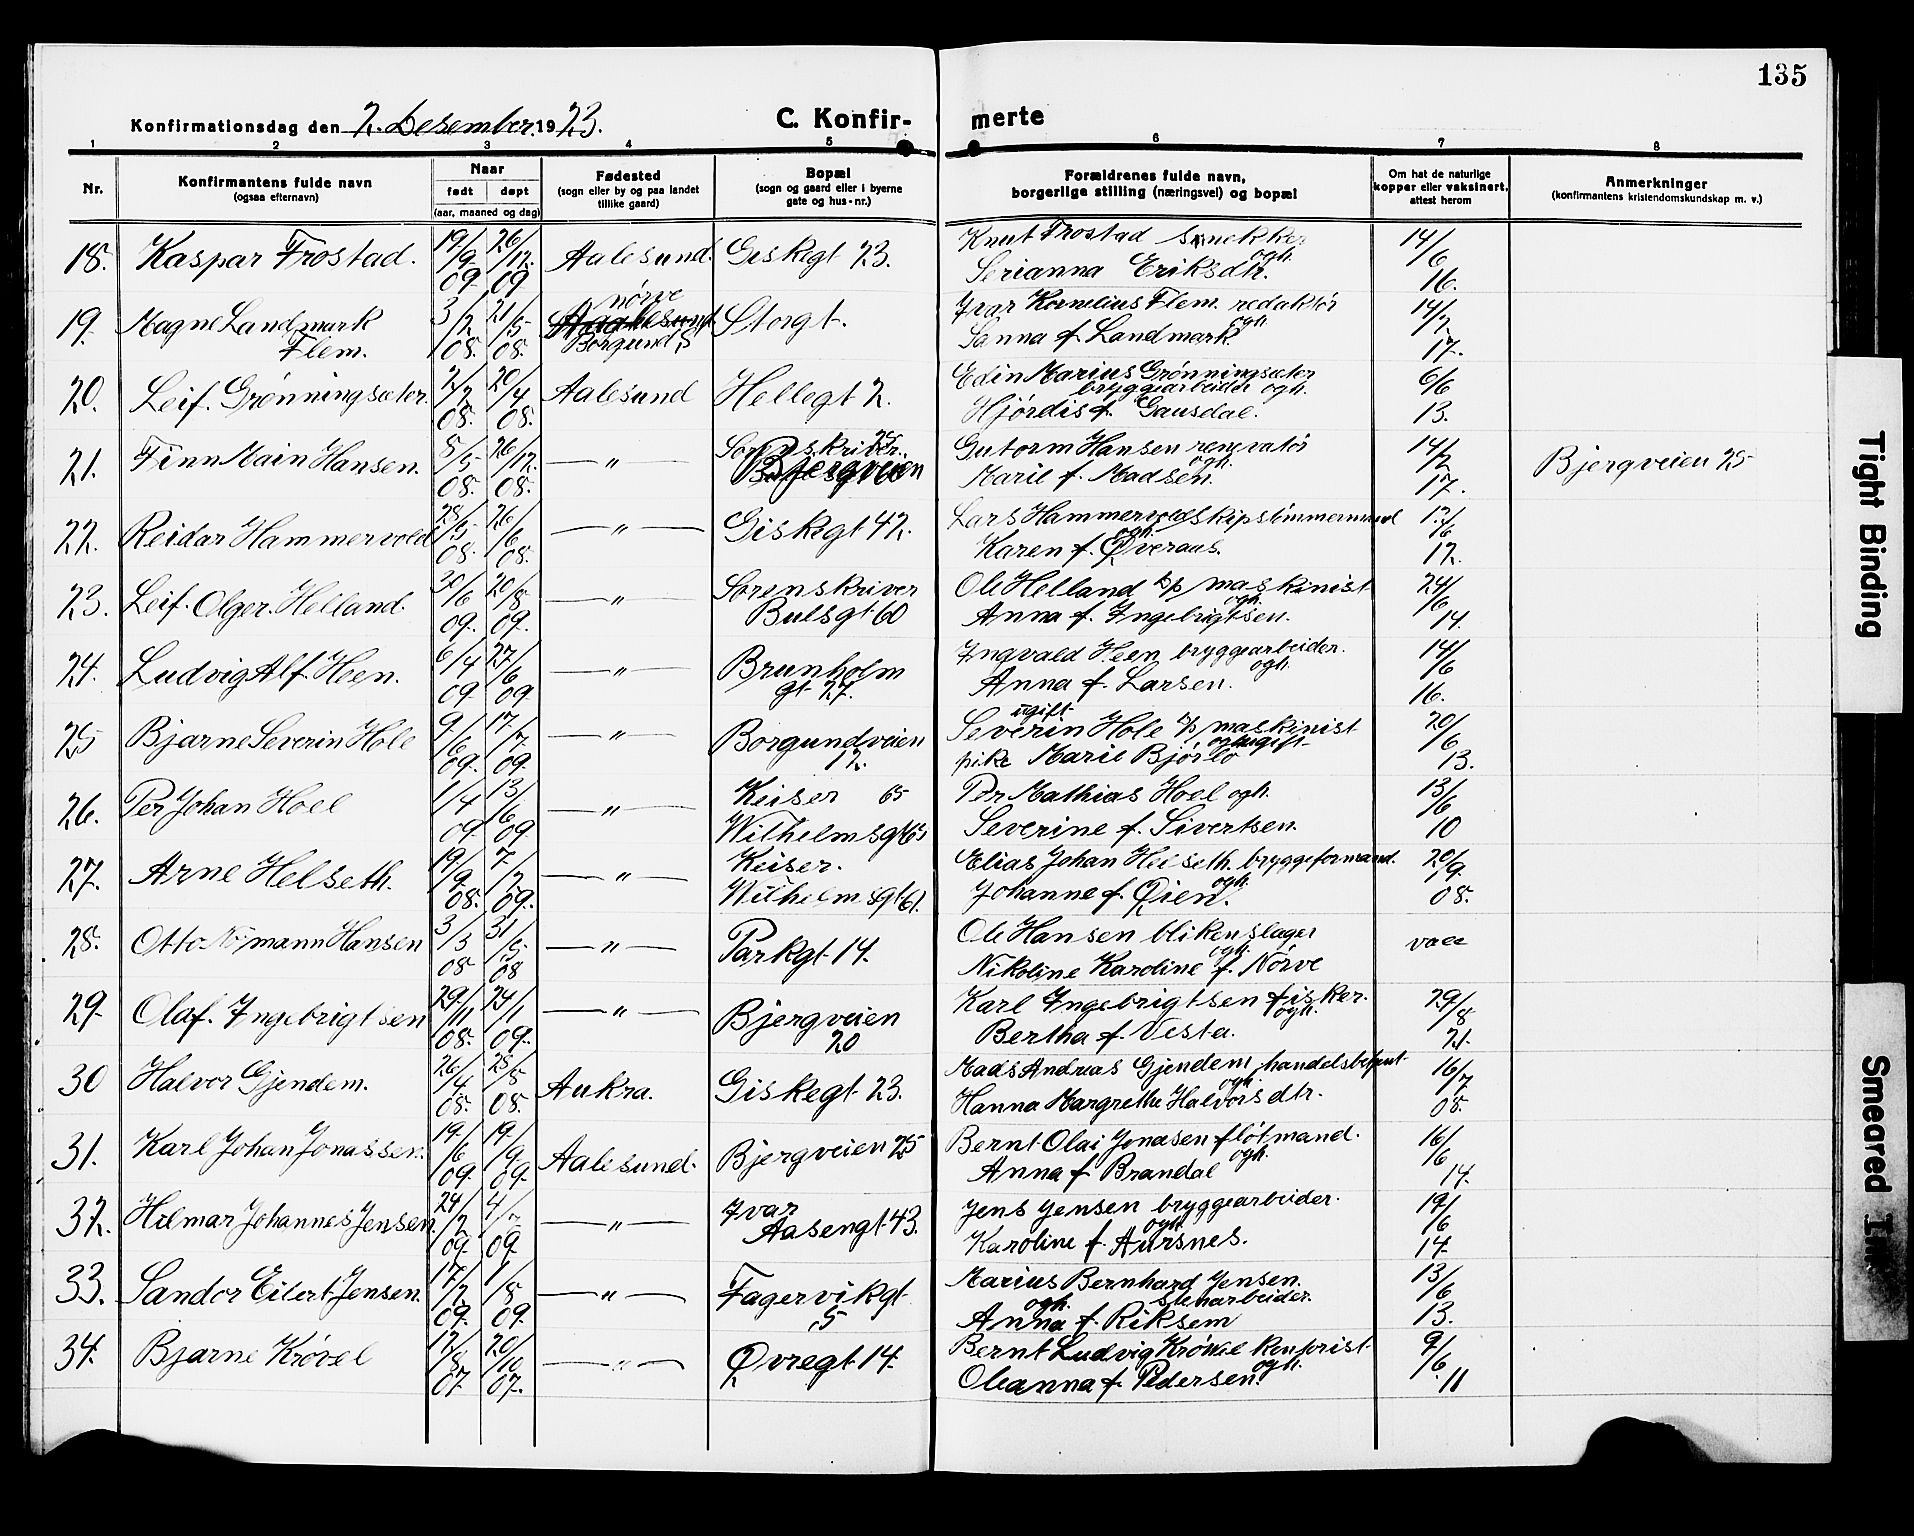 135
Konfirmationsdag den 2. Desember 1923. C. Konfir- merte
1 2 3 4 5 6 7 8
Nr. Konfirmantens fulde navn (ogsaa efternavn) Naar født døpt (aar, maaned og dag) Fødested (sogn eller by og paa landet tillike gaard) Bopæl (sogn og gaard eller i byerne gate og hus-nr.) Forældrenes fulde navn, borgerlige stilling (næringsvei) og bopæl Om hat de naturlige kopper eller vaksinert, attest herom Anmerkninger (konfirmantens kristendomskundskap m. v.)
18. Kaspar Frostad. 19/9 09 26/12 09 Aalesund. Giskegt 23. Knut Frostad snekker ogh. Serianna Eriksdtr. 14/6 16.
19. Magne Landmark Flem. 3/2 08. 21/5 08. nørve Borgund S Storgt. Ivar Kornelius Flem. redaktør ogh. Sanna f. Landmark. 14/7 17.
20. Leif. Grønningsæter. 2/2 08. 20/4 08. Aalesund Hellegt 2. Edin Marius Grønningsæter bryggearbeider ogh. Hjørdis f. Gausdal. 6/6 13.
21. Finn Main Hansen. 8/5 08. 26/12 08. — " — Sorenskriver Gutorm Hansen renovatør ogh. Marie f. Madsen. 14/2 17. Bjergveien 25
22. Reidar Hammervold 28/3 08. 26/6 08. — " — Giskegt 42. Lars Hammervold skipstimmermand ogh. Karen f. Øveraas. 12/6 12.
23. Leif. Olger. Helland. 30/6 09. 20/8 09. — " — Sorenskriver Bulsgt 60 Ole Helland D/p maskinist ogh. Anna f. Ingebrigtsen. 24/6 14.
24. Ludvig Alf. Heen. 6/4 09. 27/6 09 — " — Brunholm gt 27. Ingvald Heen bryggearbeider. ogh. Anna f. Larsen. 14/6 16.
25 Bjarne Severin Hole 9/6 09. 17/7 09. — " — Borgundveien 12. ugift Severin Hole D/p maskinist og ugift pike Marie Bjørlo 20/6 13.
26. Per Johan Hoel 1/4 09. 13/6 09 — " — Keiser 65 Wilhelmsgt 65 Per Mathias Hoel ogh. Severine f. Sivertsen. 13/6 10
27. Arne Helseth. 19/9 08. 7/2 09. — " — Keiser. Wilhelmsgt 61. Elias Johan Helseth. bryggeformand. ogh. Johanne f. Øien. 20/9. 08.
28. Otto Normann Hansen 3/3 08 31/5 08 — " — Parkgt 14. Ole Hansen blikenslager ogh. Nikoline Karoline f. Nørve
29. Olaf. Ingebrigtsen 29/11 08. 24/1 09. — " — Bjergveien 20 Karl Ingebrigtsen fisker. ogh. Bertha f. Vesta. 29/8 21.
30 Halvor Gjendem. 26/4 08. 28/5 08. Aukra. Giskegt 23. Mads Andreas Gjendem handelsbetjent ogh. Hanna Margrethe Halvorsdtr. 16/7 08.
31. Karl Johan Jonassen. 19/6 09. 19/9 09. Aalesund. Bjergveien 25 Bernt Olai Jonasen fløtmand. ogh. Anna f. Brandal 16/6 14.
32. Hilmar Johannes Jensen. 24/2 09. 4/7 09. — " — Ivar Aasengt 43. Jens Jensen bryggearbeider. ogh. Karoline f. Aursnes. 19/6 14.
33. Sandor Eilert Jensen. 17/2 09. 1/8 09. — " — Fagervikgt 5 Marius Bernhard Jensen. stenarbeider. ogh. Anna f. Riksem 13/6 13.
34. Bjarne Krøvel 12/8 07. 20/10 07. — " — Øvregt 14. Bernt Ludvig Krøvel ogh. Oleanna f. Pedersen. 9/6. 11
Tight Binding
Smeared Ink